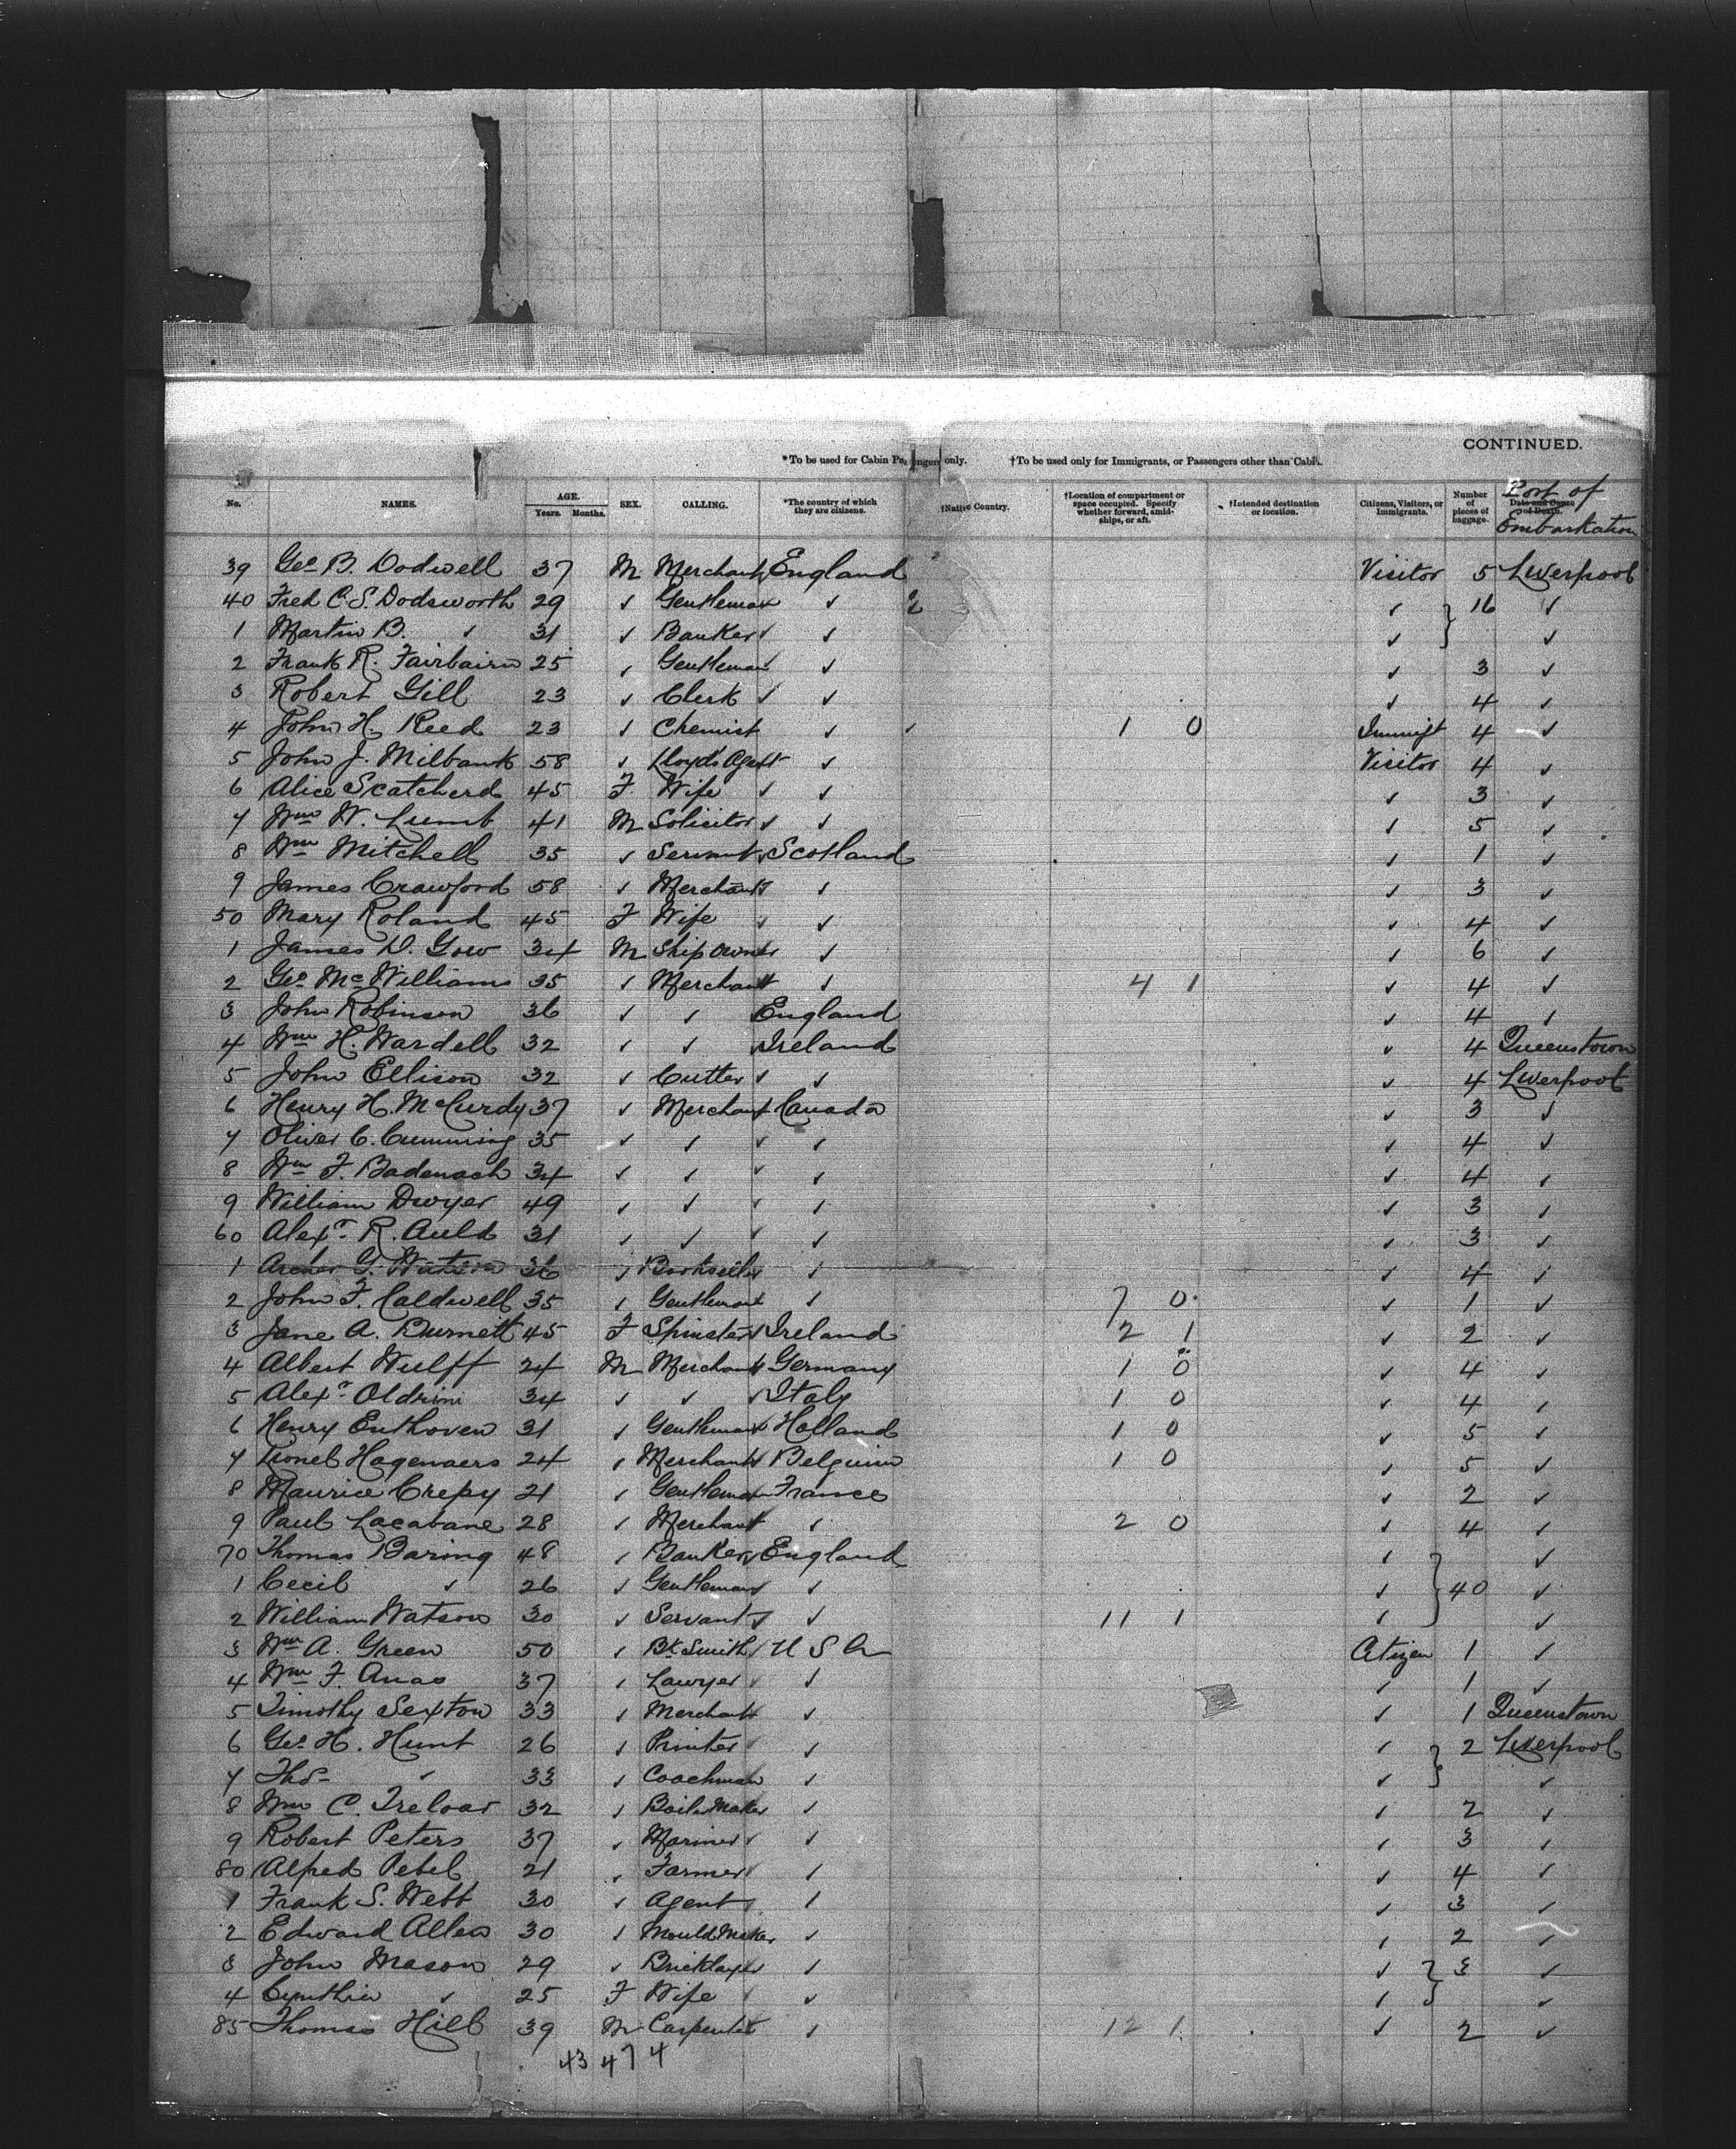 CONTINUED.
*To be used for Cabin Passengers only. †To be used only for Immigrants, or Passengers other than Cabin.
No. NAMES. AGE. Years. Months. SEX. CALLING. *The country of which they are citizens. †Native Country. †Location of compartment or space occupied. Specify whether forward, amidships, or aft. †Intended destination or location. Citizens, Visitors, or Immigrants. Number of pieces of baggage. Date and Cause of Death. Port of Embarkation
39 Geo B. Dodwell 37 M Merchant England Visitor 5 Liverpool
40 Fred C. S. Dodsworth 29 ✓ Gentleman ✓ ✓ } 16 ✓
1 Martin B. ✓ 31 ✓ Banker ✓ ✓ ✓ ✓
2 Frank R. Fairbairn 25 ✓ Gentleman ✓ ✓ 3 ✓
3 Robert Gill 23 ✓ Clerk ✓ ✓ ✓ 4 ✓
4 John H. Reed 23 ✓ Chemist ✓ 1 0 Immigt 4 ✓
5 John J. Milbank 58 ✓ Lloyds Agent ✓ Visitor 4 ✓
6 Alice Scatcherd 45 F Wife ✓ ✓ ✓ 3 ✓
7 Wm W. Lumb 41 M Solicitor ✓ ✓ ✓ 5 ✓
8 Wm Mitchell 35 ✓ Servant Scotland ✓ 1 ✓
9 James Crawford 58 ✓ Merchant ✓ ✓ 3 ✓
50 Mary Roland 45 F Wife ✓ ✓ ✓ 4 ✓
1 James D. Gow 34 M Ship Owner ✓ ✓ 6 ✓
2 Geo McWilliams 35 ✓ Merchant ✓ 4 1 ✓ 4 ✓
3 John Robinson 36 ✓ ✓ England ✓ 4 ✓
4 Wm H. Wardell 32 ✓ ✓ Ireland ✓ 4 Queenstown
5 John Ellison 32 ✓ Cutter ✓ ✓ ✓ 4 Liverpool
6 Henry H. McCurdy 37 ✓ Merchant Canada ✓ 3 ✓
7 Oliver C. Cumming 35 ✓ ✓ ✓ ✓ ✓ 4 ✓
8 Wm F. Badenach 34 ✓ ✓ ✓ ✓ ✓ 4 ✓
9 William Dwyer 49 ✓ ✓ ✓ ✓ ✓ 3 ✓
60 Alexr R. Auld 31 ✓ ✓ ✓ ✓ ✓ 3 ✓
1 Archer G. Watson 36 ✓ Bookseller ✓ ✓ 4 ✓
2 John F. Caldwell 35 ✓ Gentleman ✓ 7 0 ✓ 1 ✓
3 Jane A. Burnett 45 F Spinster Ireland 2 1 ✓ 2 ✓
4 Albert Wulff 24 M Merchant Germany 1 0 ✓ 4 ✓
5 Alexr Oldrini 34 ✓ ✓ ✓ Italy 1 0 ✓ 4 ✓
6 Henry Enthoven 31 ✓ Gentleman Holland 1 0 ✓ 5 ✓
7 Lionel Hagenaers 24 ✓ Merchant Belguim 1 0 ✓ 5 ✓
8 Maurice Crepy 21 ✓ Gentleman France ✓ 2 ✓
9 Paul Lacabane 28 ✓ Merchant ✓ 2 0 ✓ 4 ✓
70 Thomas Baring 48 ✓ Banker England ✓ ✓
1 Cecil ✓ 26 ✓ Gentleman ✓ ✓ } 40 ✓
2 William Watson 30 ✓ Servant ✓ 11 1 ✓ ✓
3 Wm A. Green 50 ✓ Bk Smith U S A Citizen 1 ✓
4 Wm F. 37 ✓ Lawyer ✓ ✓ 1 ✓
5 Timothy Sexton 33 ✓ Merchant ✓ ✓ 1 Queenstown
6 Geo H. Hunt 26 ✓ Printer ✓ ✓ } 2 Liverpool
7 Thos ✓ 33 ✓ Coachman ✓ ✓ ✓
8 Wm C. Treloar 32 ✓ Boiler Maker ✓ ✓ 2 ✓
9 Robert Peters 37 ✓ Mariner ✓ ✓ 3 ✓
80 Alfred Pebel 21 ✓ Farmer ✓ ✓ 4 ✓
1 Frank S. Webb 30 ✓ Agent ✓ ✓ 3 ✓
2 Edward Allen 30 ✓ Mould Maker ✓ ✓ 2 ✓
3 John Mason 29 ✓ Bricklayer ✓ ✓ } 3 ✓
4 Cynthia ✓ 25 F Wife ✓ ✓ ✓
85 Thomas Hill 39 M Carpenter ✓ 12 1 ✓ 2 ✓
43 474